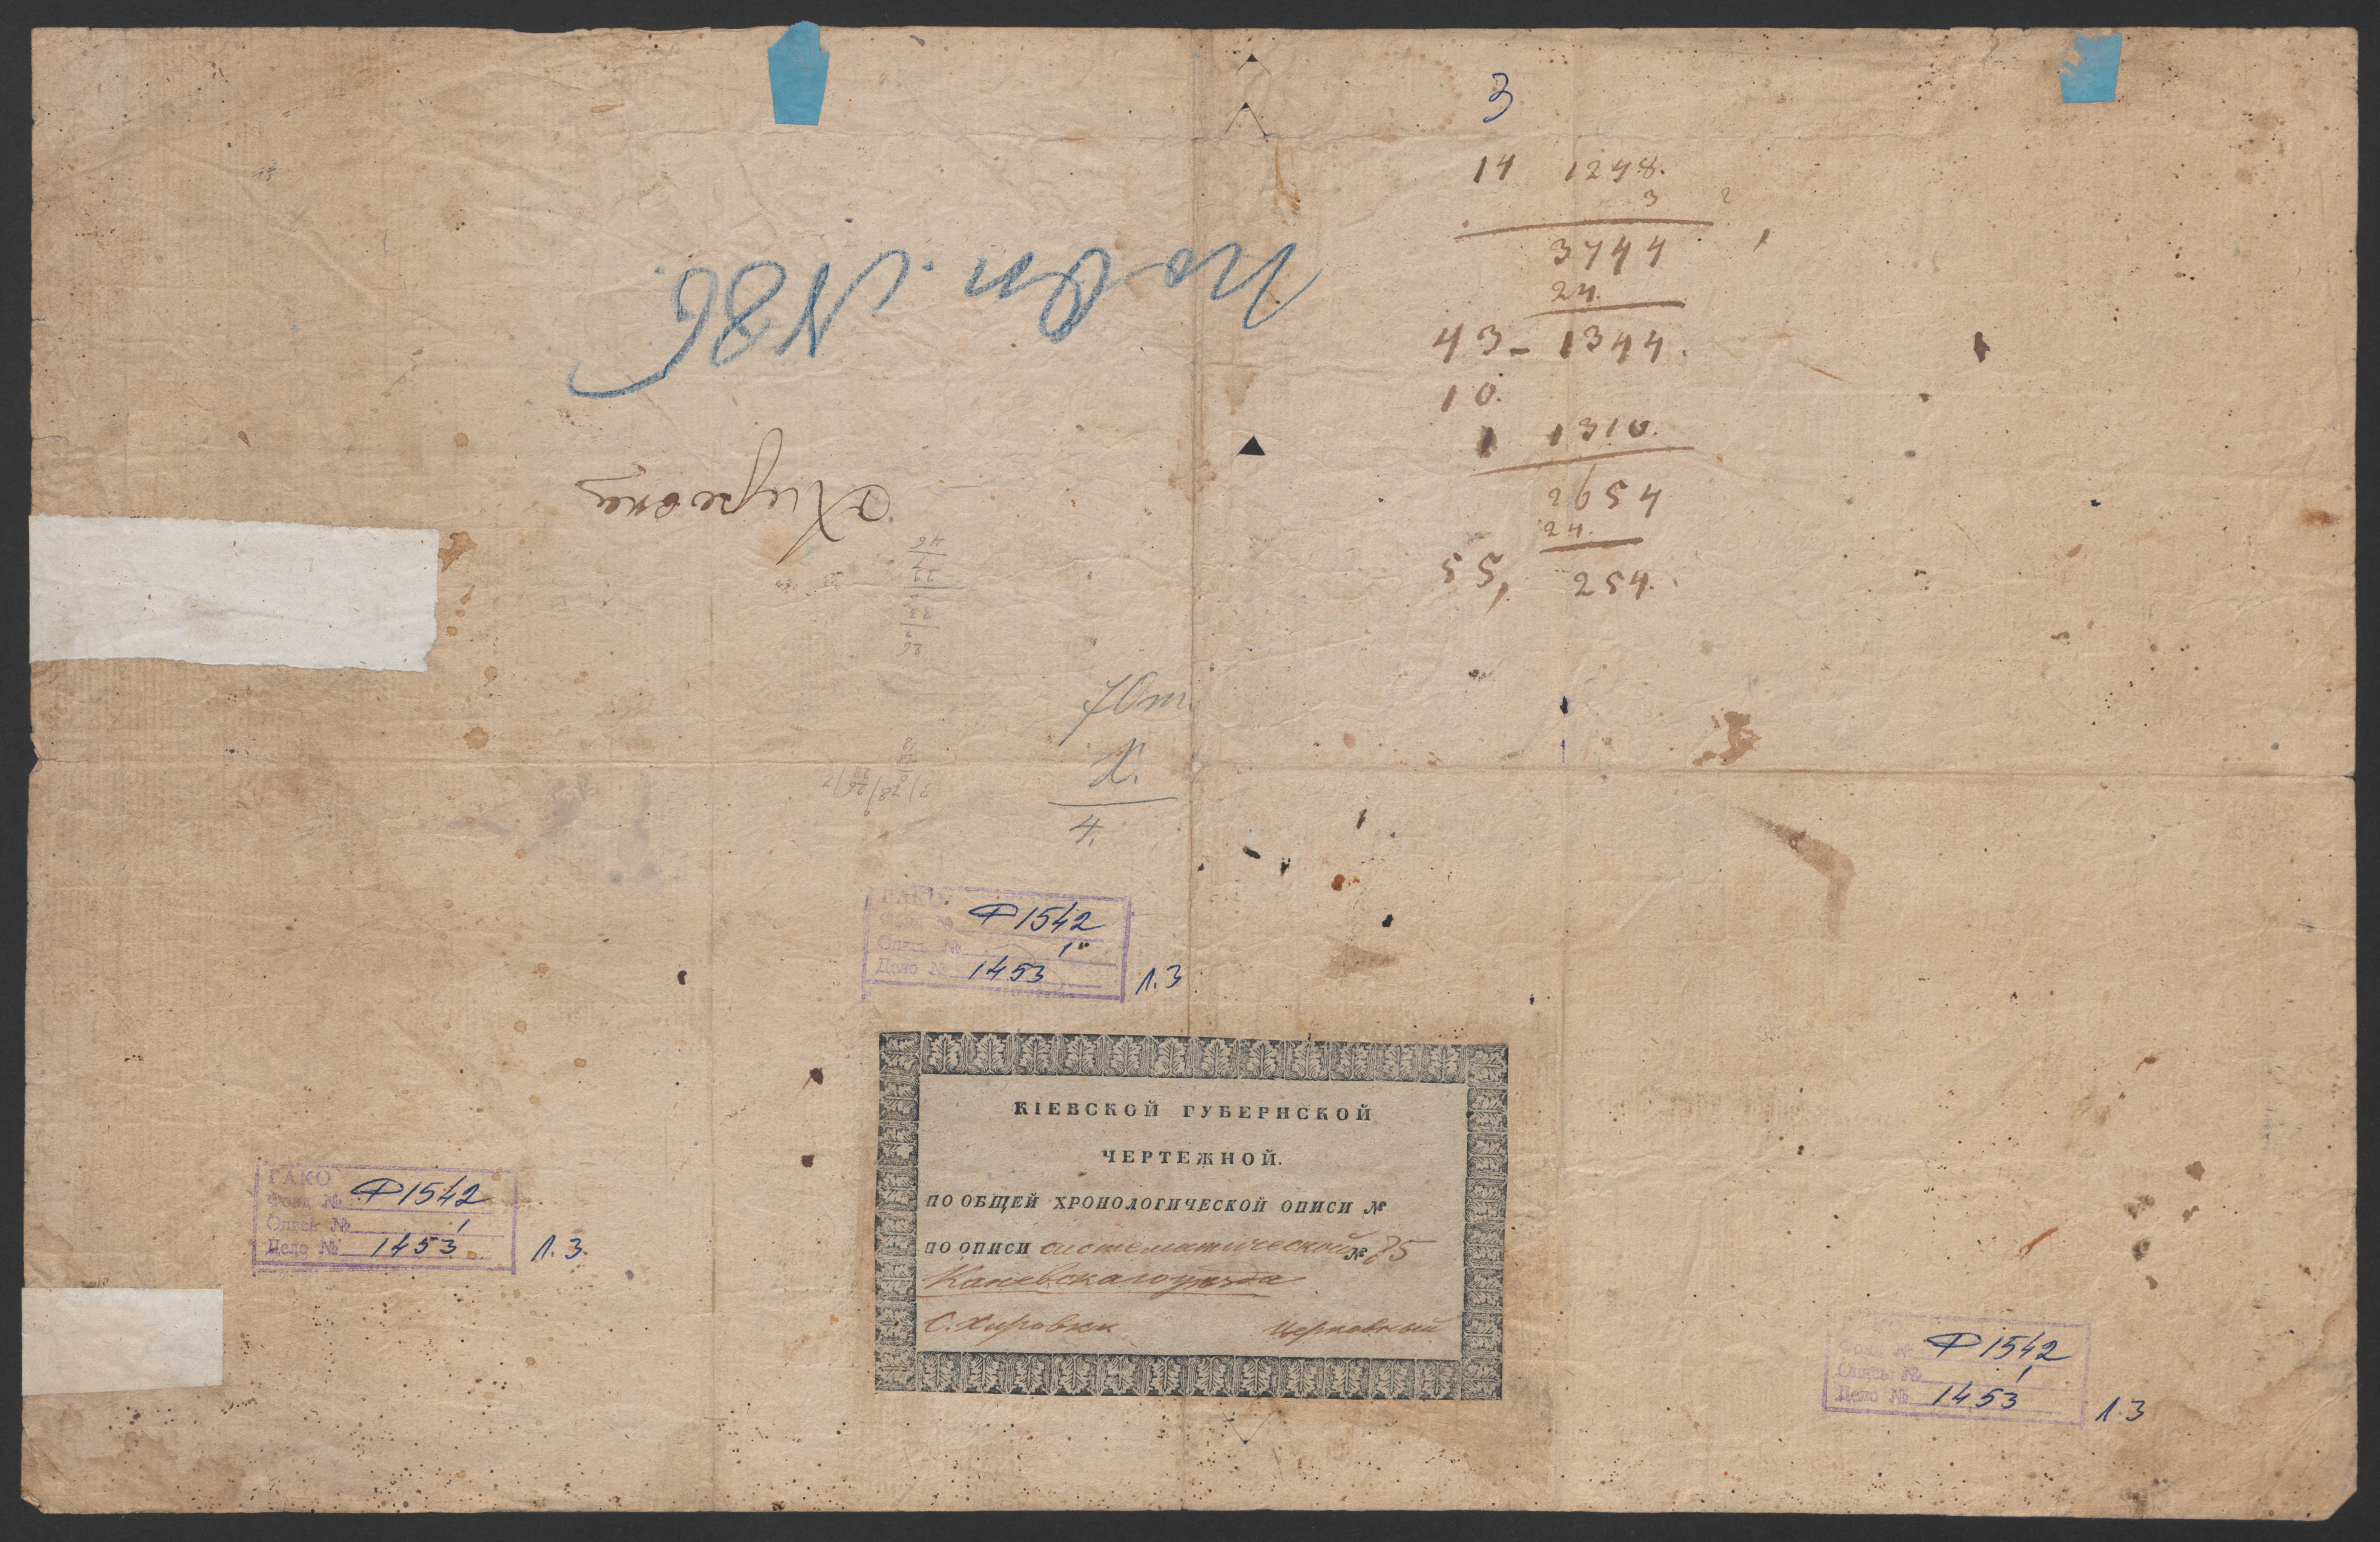 3
14 1248.
3 2
3744
24.
43 - 1344.
10.
1 1310.
2654
24.
55, 254.
По Оп. №86.
Хировка
46
33
33
26
70т.
Х.
4.
3) 78/26/7
ГАКО
Фонд № Ф1542
Опись № 1
Дело № 1453 Л.3
КІЕВСКОЙ ГУБЕРНСКОЙ
ЧЕРТЕЖНОЙ.
ПО ОБЩЕЙ ХРОНОЛОГИЧЕСКОЙ ОПИСИ №
ПО ОПИСИ систематической № 85
Каневскаго уезда
С. Хировки Церковный
ГАКО
Фонд № Ф1542
Опись № 1
Дело № 1453 Л.3.
Фонд № Ф1542
Опись № 1
Дело № 1453 Л.3